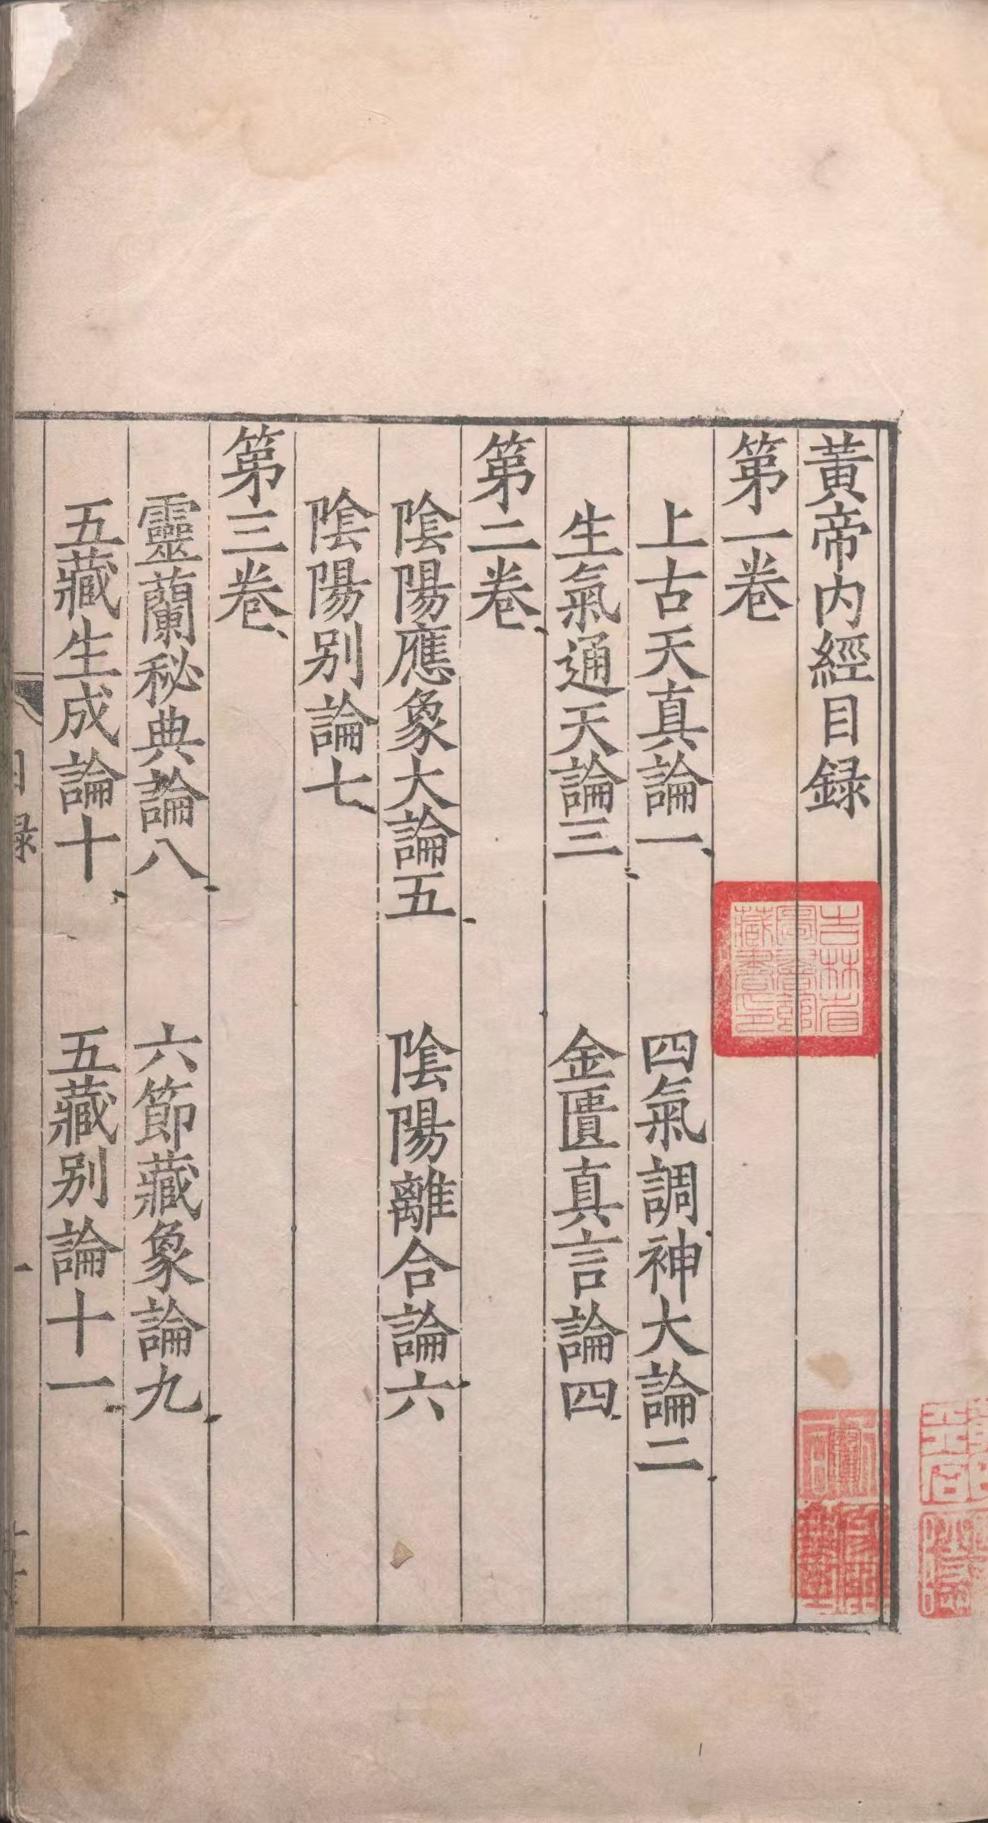 黃帝内經目録
第一卷
上古天真論一 四氣調神大論二
生氣通天論三 金匱真言論四
第二卷
陰陽應象大論五 陰陽離合論六
陰陽别論七
第三卷
靈蘭秘典論八 六節藏象論九
五藏生成論十 五藏别論十一
目録
一
吉林省
圖書館
藏書印